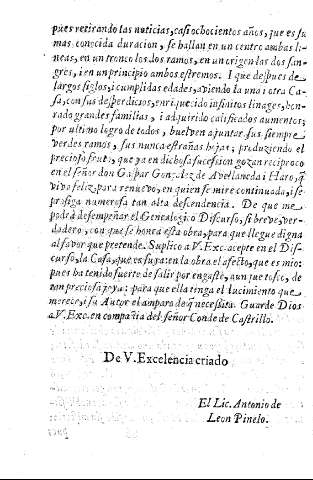 pues retirando las noticias, casi ochocientos años, que es su
mas conocida duracion, se hallan en un centro ambas li-
neas, en un tronco los dos ramos, en un origen las dos san-
gres, i en un principio ambos estremos. I que despues de
largos siglos, i cumplidas edades, aviendo la una i otra Ca-
sa, con sus desperdicios, enriquecido infinitos linages, hon-
rado grandes familias, i adquirido calificados aumentos;
por ultimo logro de todos, buelven a juntar sus siempre
verdes ramos, sus nunca estrañas hojas; produziendo el
precioso fruto, que ya en dichosa sucession gozan reciproco
en el señor don Gaspar Gonçalez de Avellaneda i Haro, q̃
viva feliz, para renuevo, en quien se mire continuada, i se
prosiga numerosa tan alta descendencia. De que me
podrà desempeñar el Genealogico Discurso, si breve, ver-
dadero, con que se honra esta obra, para que llegue digna
al favor que pretende. Suplico a V. Exc. acepte en el Dis-
curso, la Casa, que es suya: en la obra el afecto, que es mio:
pues ha tenido fuerte de salir por engaste, aunque tosco, de
tan preciosa joya: para que ella tinga el lucimiento que
merece, i su Autor el amparo de q̃ necessita. Guarde Dios
a V. Exc. en compañia del señor Conde de Castrillo.
De V. Excelencia criado
El Lic. Antonio de
Leon Pinelo.